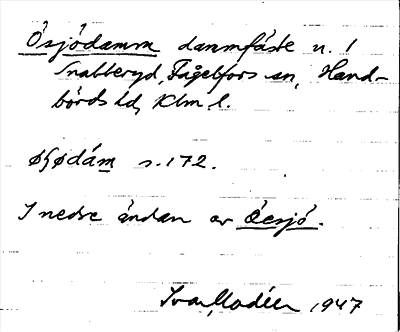 Ósjödamm dammfäste n. 1
Snabberyd, Fågelfors sn, Hand-
börds hd, Klm l.
s. 172.
I nedre ändan av Öesjö.
Ivar Modéer 1947